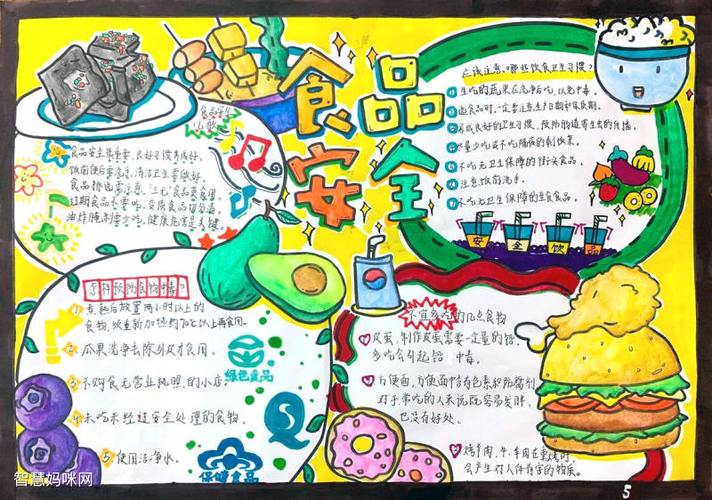 食品
安全
食品安全
儿歌
食品安全很重要,良好习惯养成好。
饭前便后要洗手,清洁卫生要做好。
食品挑选需注意,"三无"食品莫食用。
过期食品不要吃,变质食品切勿沾。
油炸腌制要少吃,健康危害是关键。
应该注意哪些饮食卫生习惯?
生吃的蔬果应洗净后吃,以免中毒。
选食品时,一定要注意生产日期和保质期。
养成良好的卫生习惯,预防肠道寄生虫的传播。
尽量少吃或不吃隔夜的剩饭菜。
不吃无卫生保障的街头食品。
注意饭前洗手。
不吃无卫生保障的生食食品。
安 全 饮 品
怎样预防食物中毒?
1 煮熟后放置两小时以上的
食物,须重新加热约70℃以上再食用。
2 瓜果洗净去除外皮才食用。
3 不购食无营业执照的小店
4 未吃未经过安全处理的食物。
5 使用洁净水。
绿色食品
QS
保健食品
不宜多吃的几点食物
皮蛋,制作皮蛋需要一定量的铅,
多吃会引起铅中毒。
方便面,方便面中含有色素和防腐剂
对于常吃的人来说既容易发胖,
也没有好处。
烤羊肉,牛、羊肉在熏烤时,
会产生对人体有害的物质。
智慧妈咪网
5